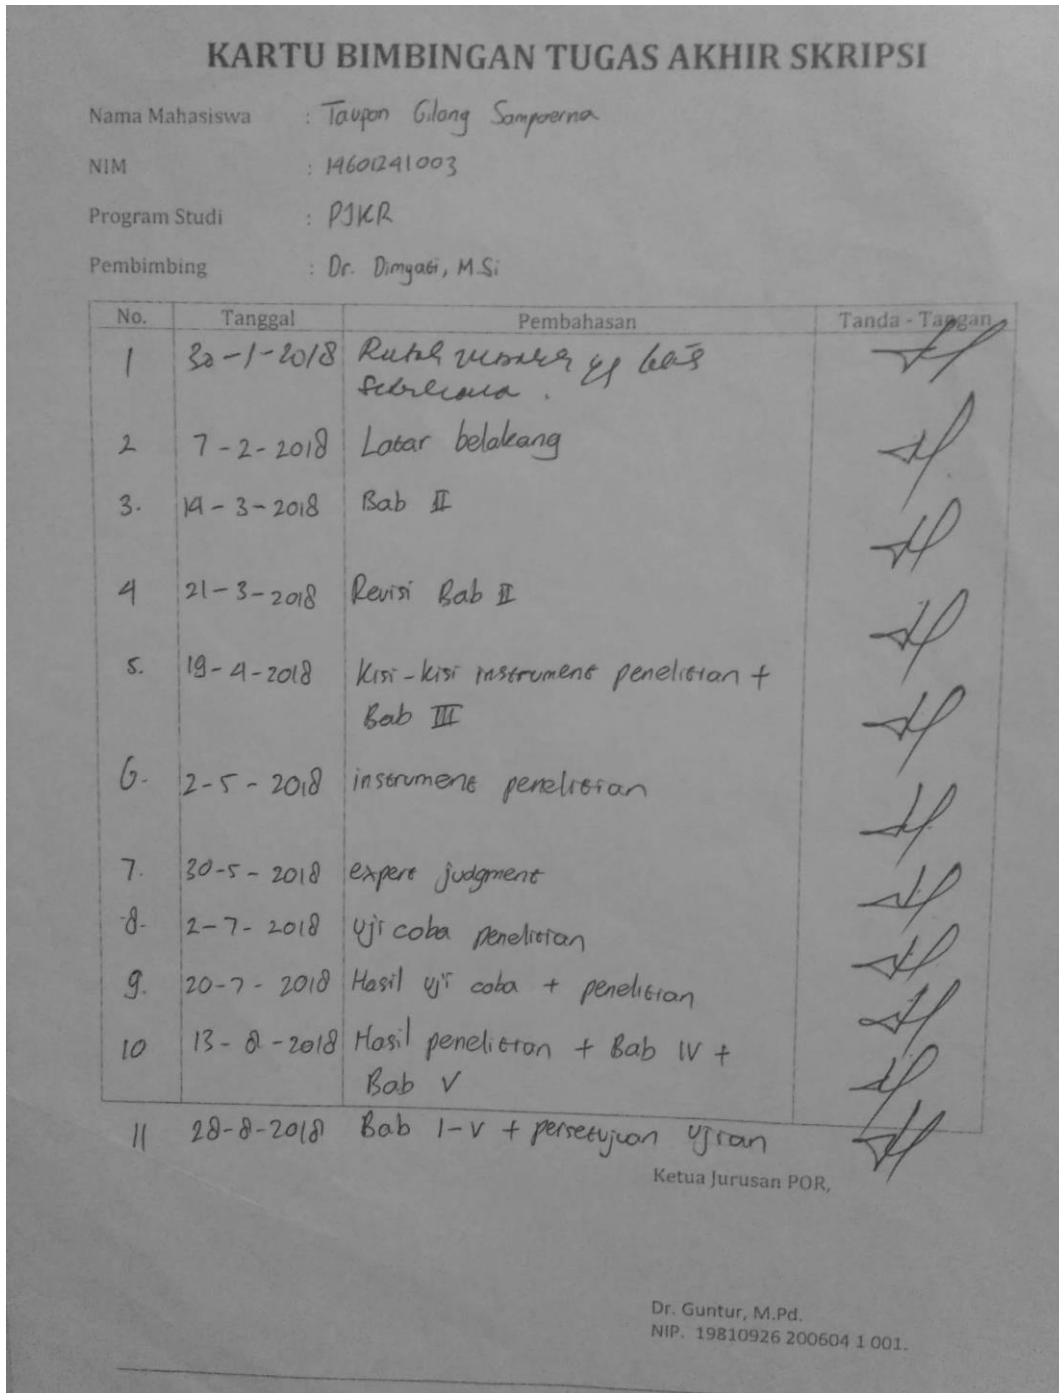 KARTU BIMBINGAN TUGAS AKHIR SKRIPSI
Nama Mahasiswa : Taupan Gilang Sampoerna
NIM : 14601241003
Program Studi : PJKR
Pembimbing : Dr. Dimyati, M.Si
No. Tanggal Pembahasan Tanda - Tangan
1 30-1-2018
2 7-2-2018 Latar belakang
3. 14-3-2018 Bab II
4 21-3-2018 Revisi Bab II
5. 19-4-2018 Kisi-kisi instrument penelitian +
Bab III
6. 2-5-2018 instrument penelitian
7. 30-5-2018 expert judgment
8. 2-7-2018 Uji coba penelitian
9. 20-7-2018 Hasil uji coba + penelitian
10 13-8-2018 Hasil penelitian + Bab IV +
Bab V
11 28-8-2018 Bab I-V + persetujuan ujian
Ketua Jurusan POR,
Dr. Guntur, M.Pd.
NIP. 19810926 200604 1 001.